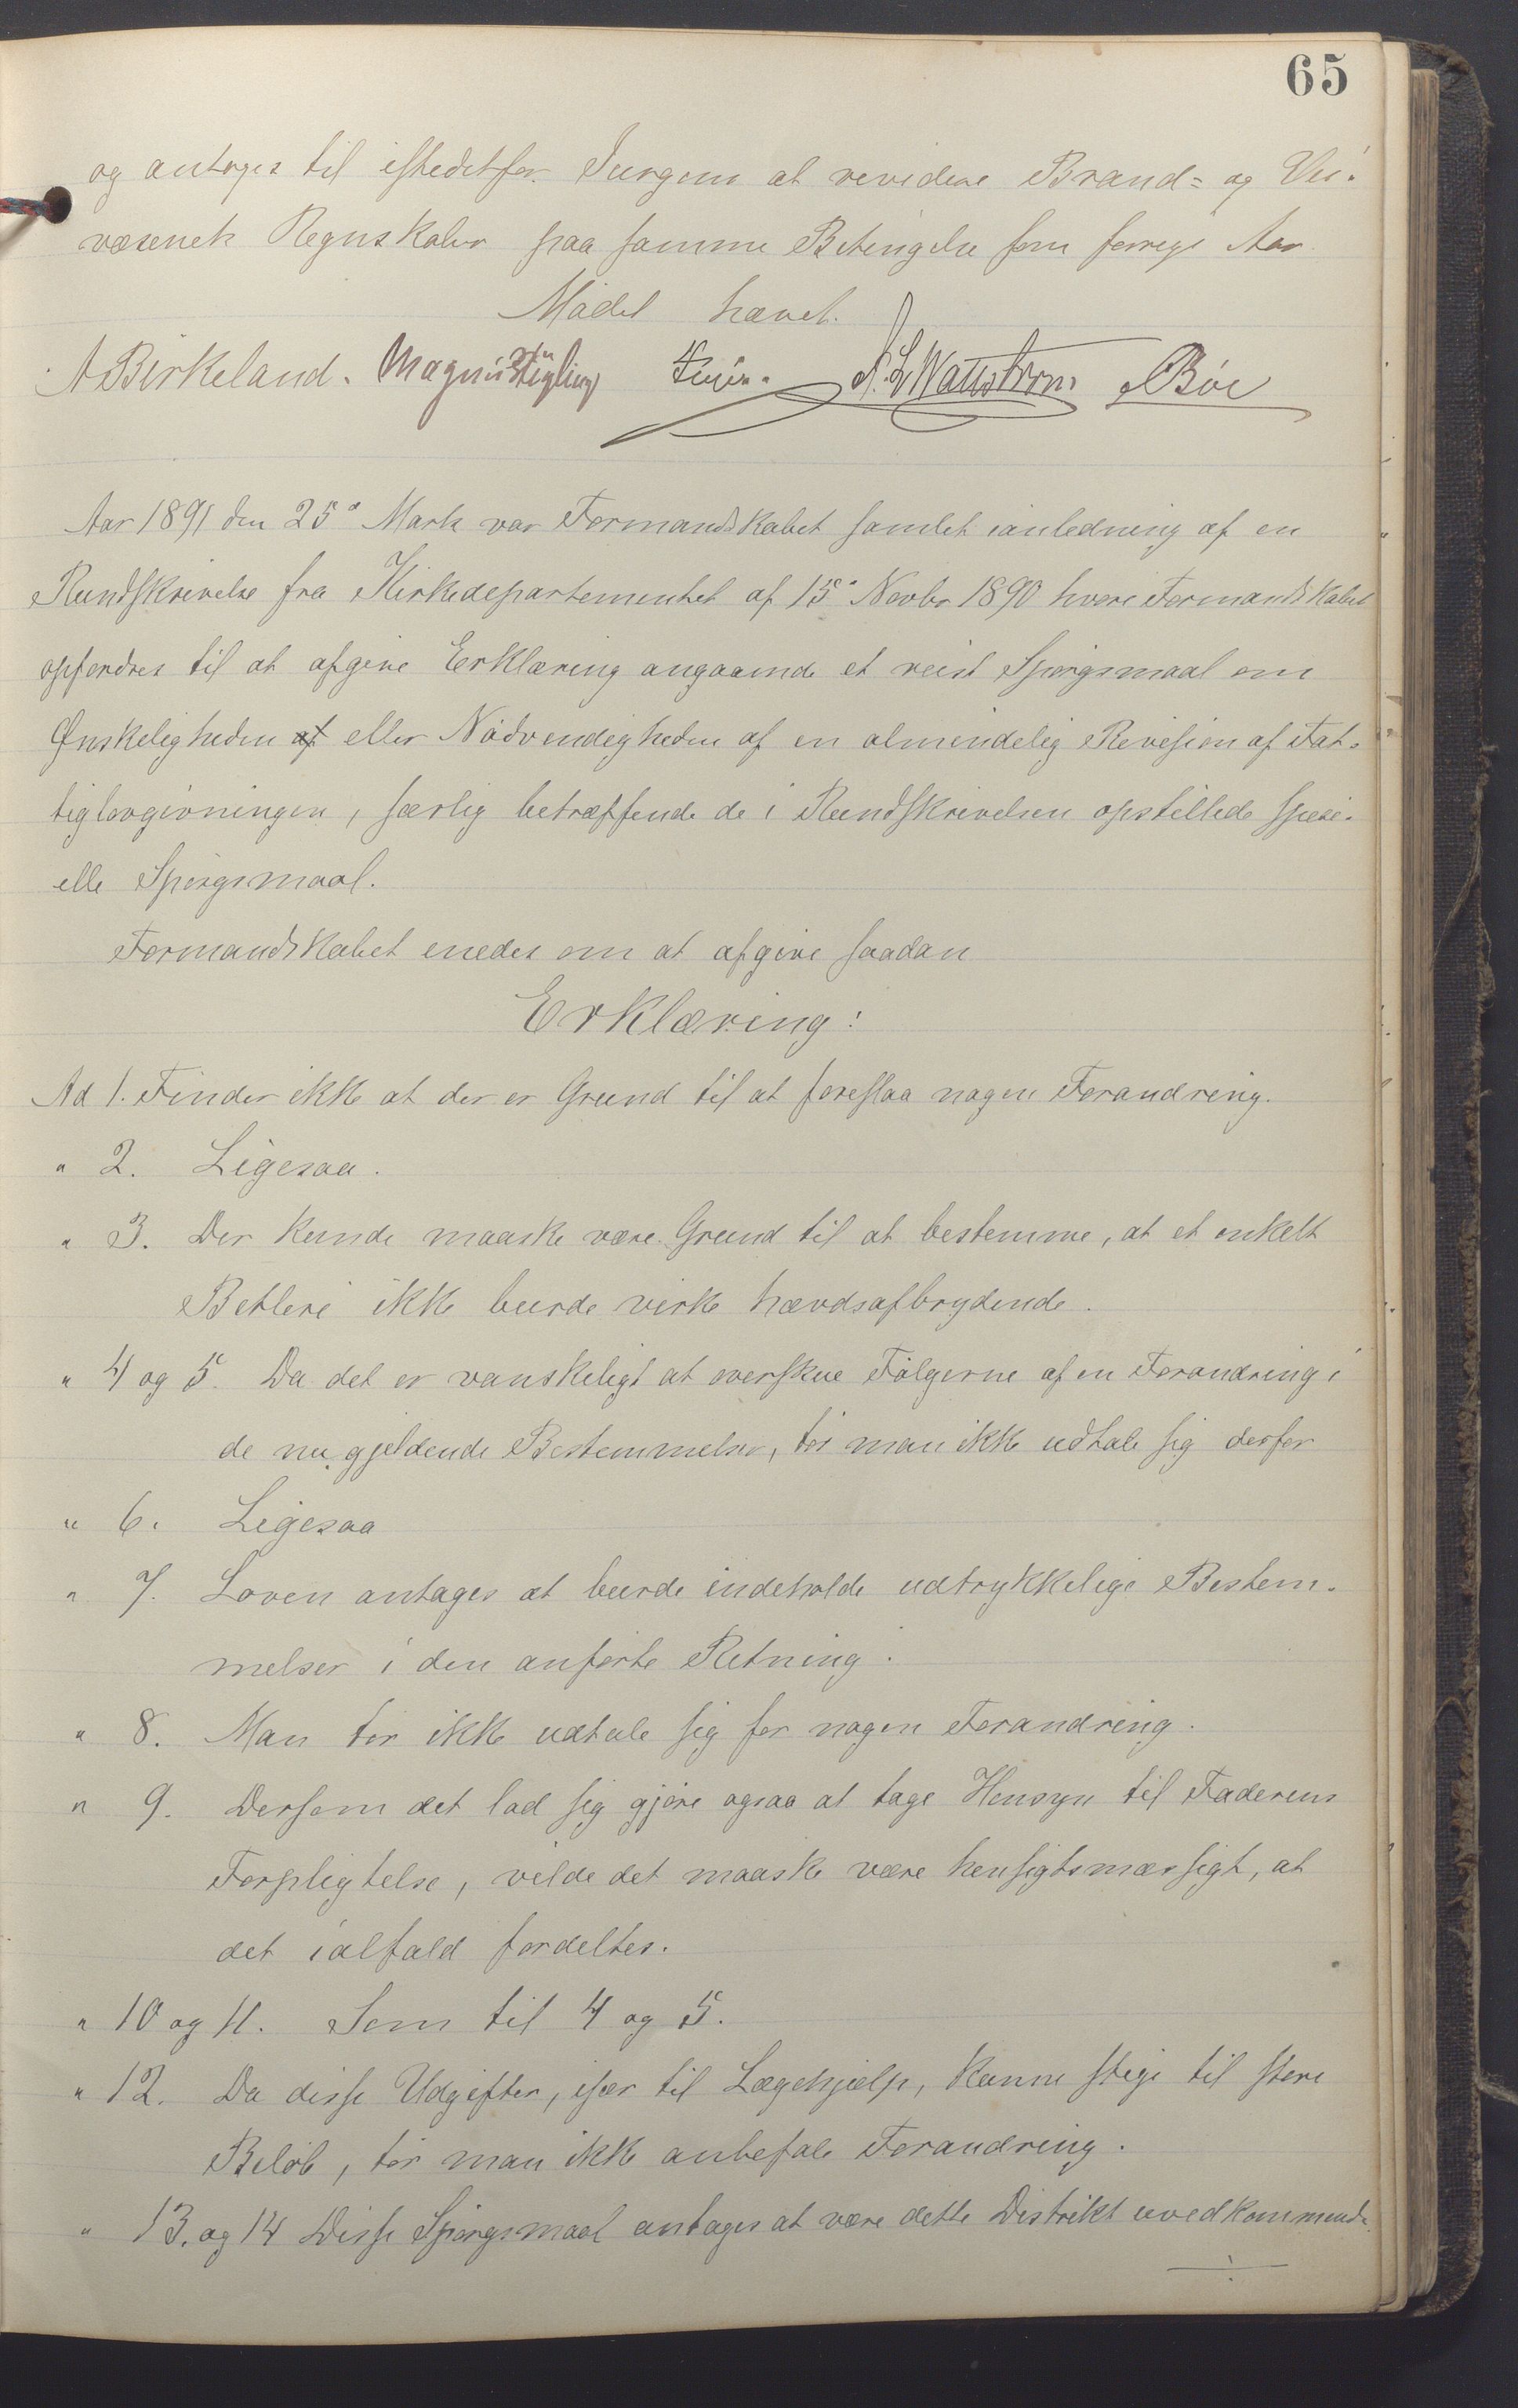 65
og antages til istedetfor Jurgens at revidere Brand= og Vei-
væsenets Regnskaber paa samme Betingelse som forrige Aar.
Mødet hævet.
A Birkeland. Magnus Bøe
Aar 1891 den 25de Marts var Formandskabet samlet ianledning af en
Rundskrivelse fra Kirkedepartementet af 15de Novbr 1890 hvori Formandskabet
opfordres til at afgive Erklæring angaaende et reist Spørgsmaal om
Ønskeligheden af eller Nødvendigheden af en almindelig Revision af Fat-
tiglovgivningen, særlig betræffende de i Rundskrivelsen opstillede speci-
elle Spørgsmaal.
Formandskabet enedes om at afgive saadan
Erklæring:
Ad 1. Finder ikke at der er Grund til at foreslaa nogen Forandring.
" 2. Ligesaa.
" 3. Der kunde maaske være Grund til at bestemme, at et enkelt
Betleri ikke burde virke hævdsafbrydende.
" 4 og 5. Da det er vanskeligt at overskue Følgerne af en Forandring i
de nu gjeldende Bestemmelser, tør man ikke udtale sig derfor
" 6. Ligesaa
" 7. Loven antages at burde indeholde udtrykkelige Bestem-
melser i den anførte Retning.
" 8. Man tør ikke udtale sig for nogen Forandring.
" 9. Dersom det lod sig gjøre ogsaa at tage Hensyn til Faderens
Forpligtelse, vilde det maaske være hensigtsmæssigt, at
det ialfald fordeltes.
" 10 og 11. Som til 4 og 5.
" 12. Da disse Udgifter, især til Lægehjælp, kunne stige til store
Beløb, tør man ikke anbefale Forandring.
" 13. og 14 Disse Spørgsmaal antages at være dette Distrikt uvedkommende.